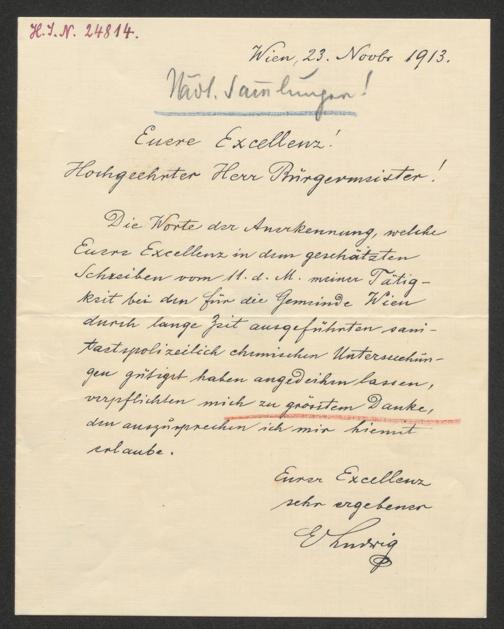 H.I.N. 24814.
Wien, 23. Novbr 1913.
Städt. Sammlungen!
Euere Excellenz!
Hochgeehrter Herr Bürgermeister!
Die Worte der Anerkennung, welche
Euere Excellenz in dem geschätzten
Schreiben vom 11. d. M. meiner Tätig-
keit bei den für die Gemeinde Wien
durch lange Zeit ausgeführten sani-
taetspolizeilich chemischen Untersuchun-
gen gütigst haben angedeihen lassen,
verpflichten mich zu grösstem Danke,
den auszusprechen ich mir hiemit
erlaube.
Eurer Excellenz
sehr ergebener
E Ludwig